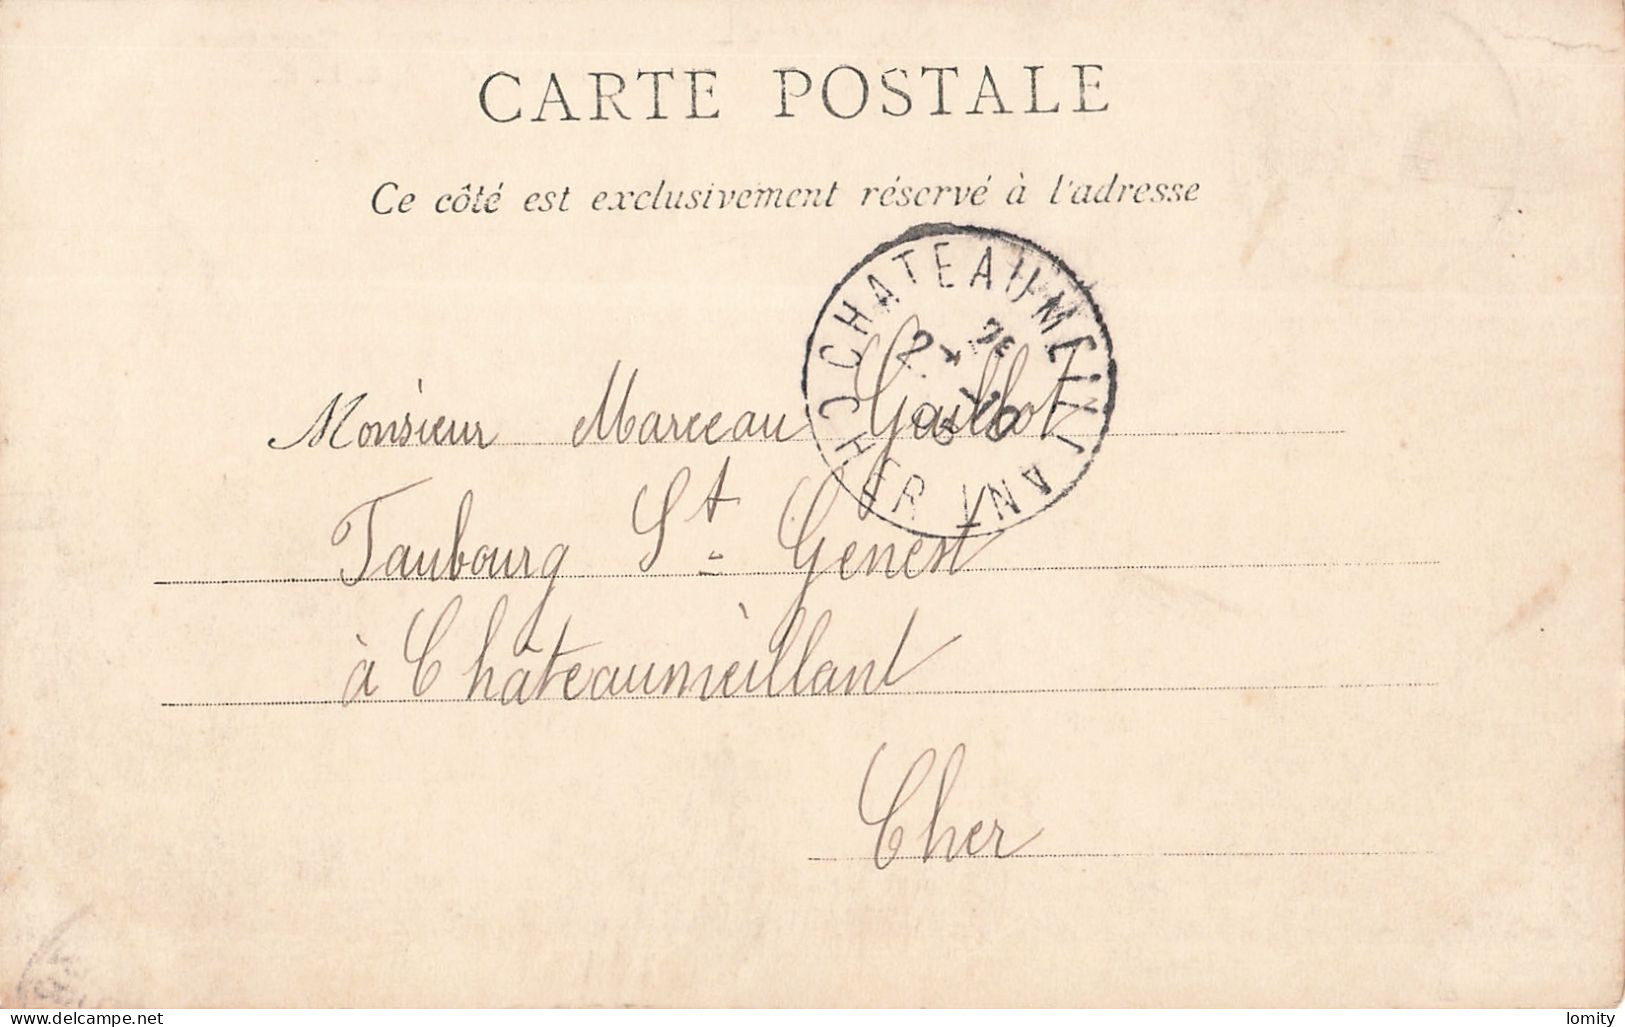 CARTE POSTALE
Ce côté est exclusivement réservé à l'adresse
CHATEAUMEILLANT
CHER
Monsieur Marceau Gaillot
Faubourg St Genest
à Châteaumeillant
Cher
www.delcampe.net
lomity